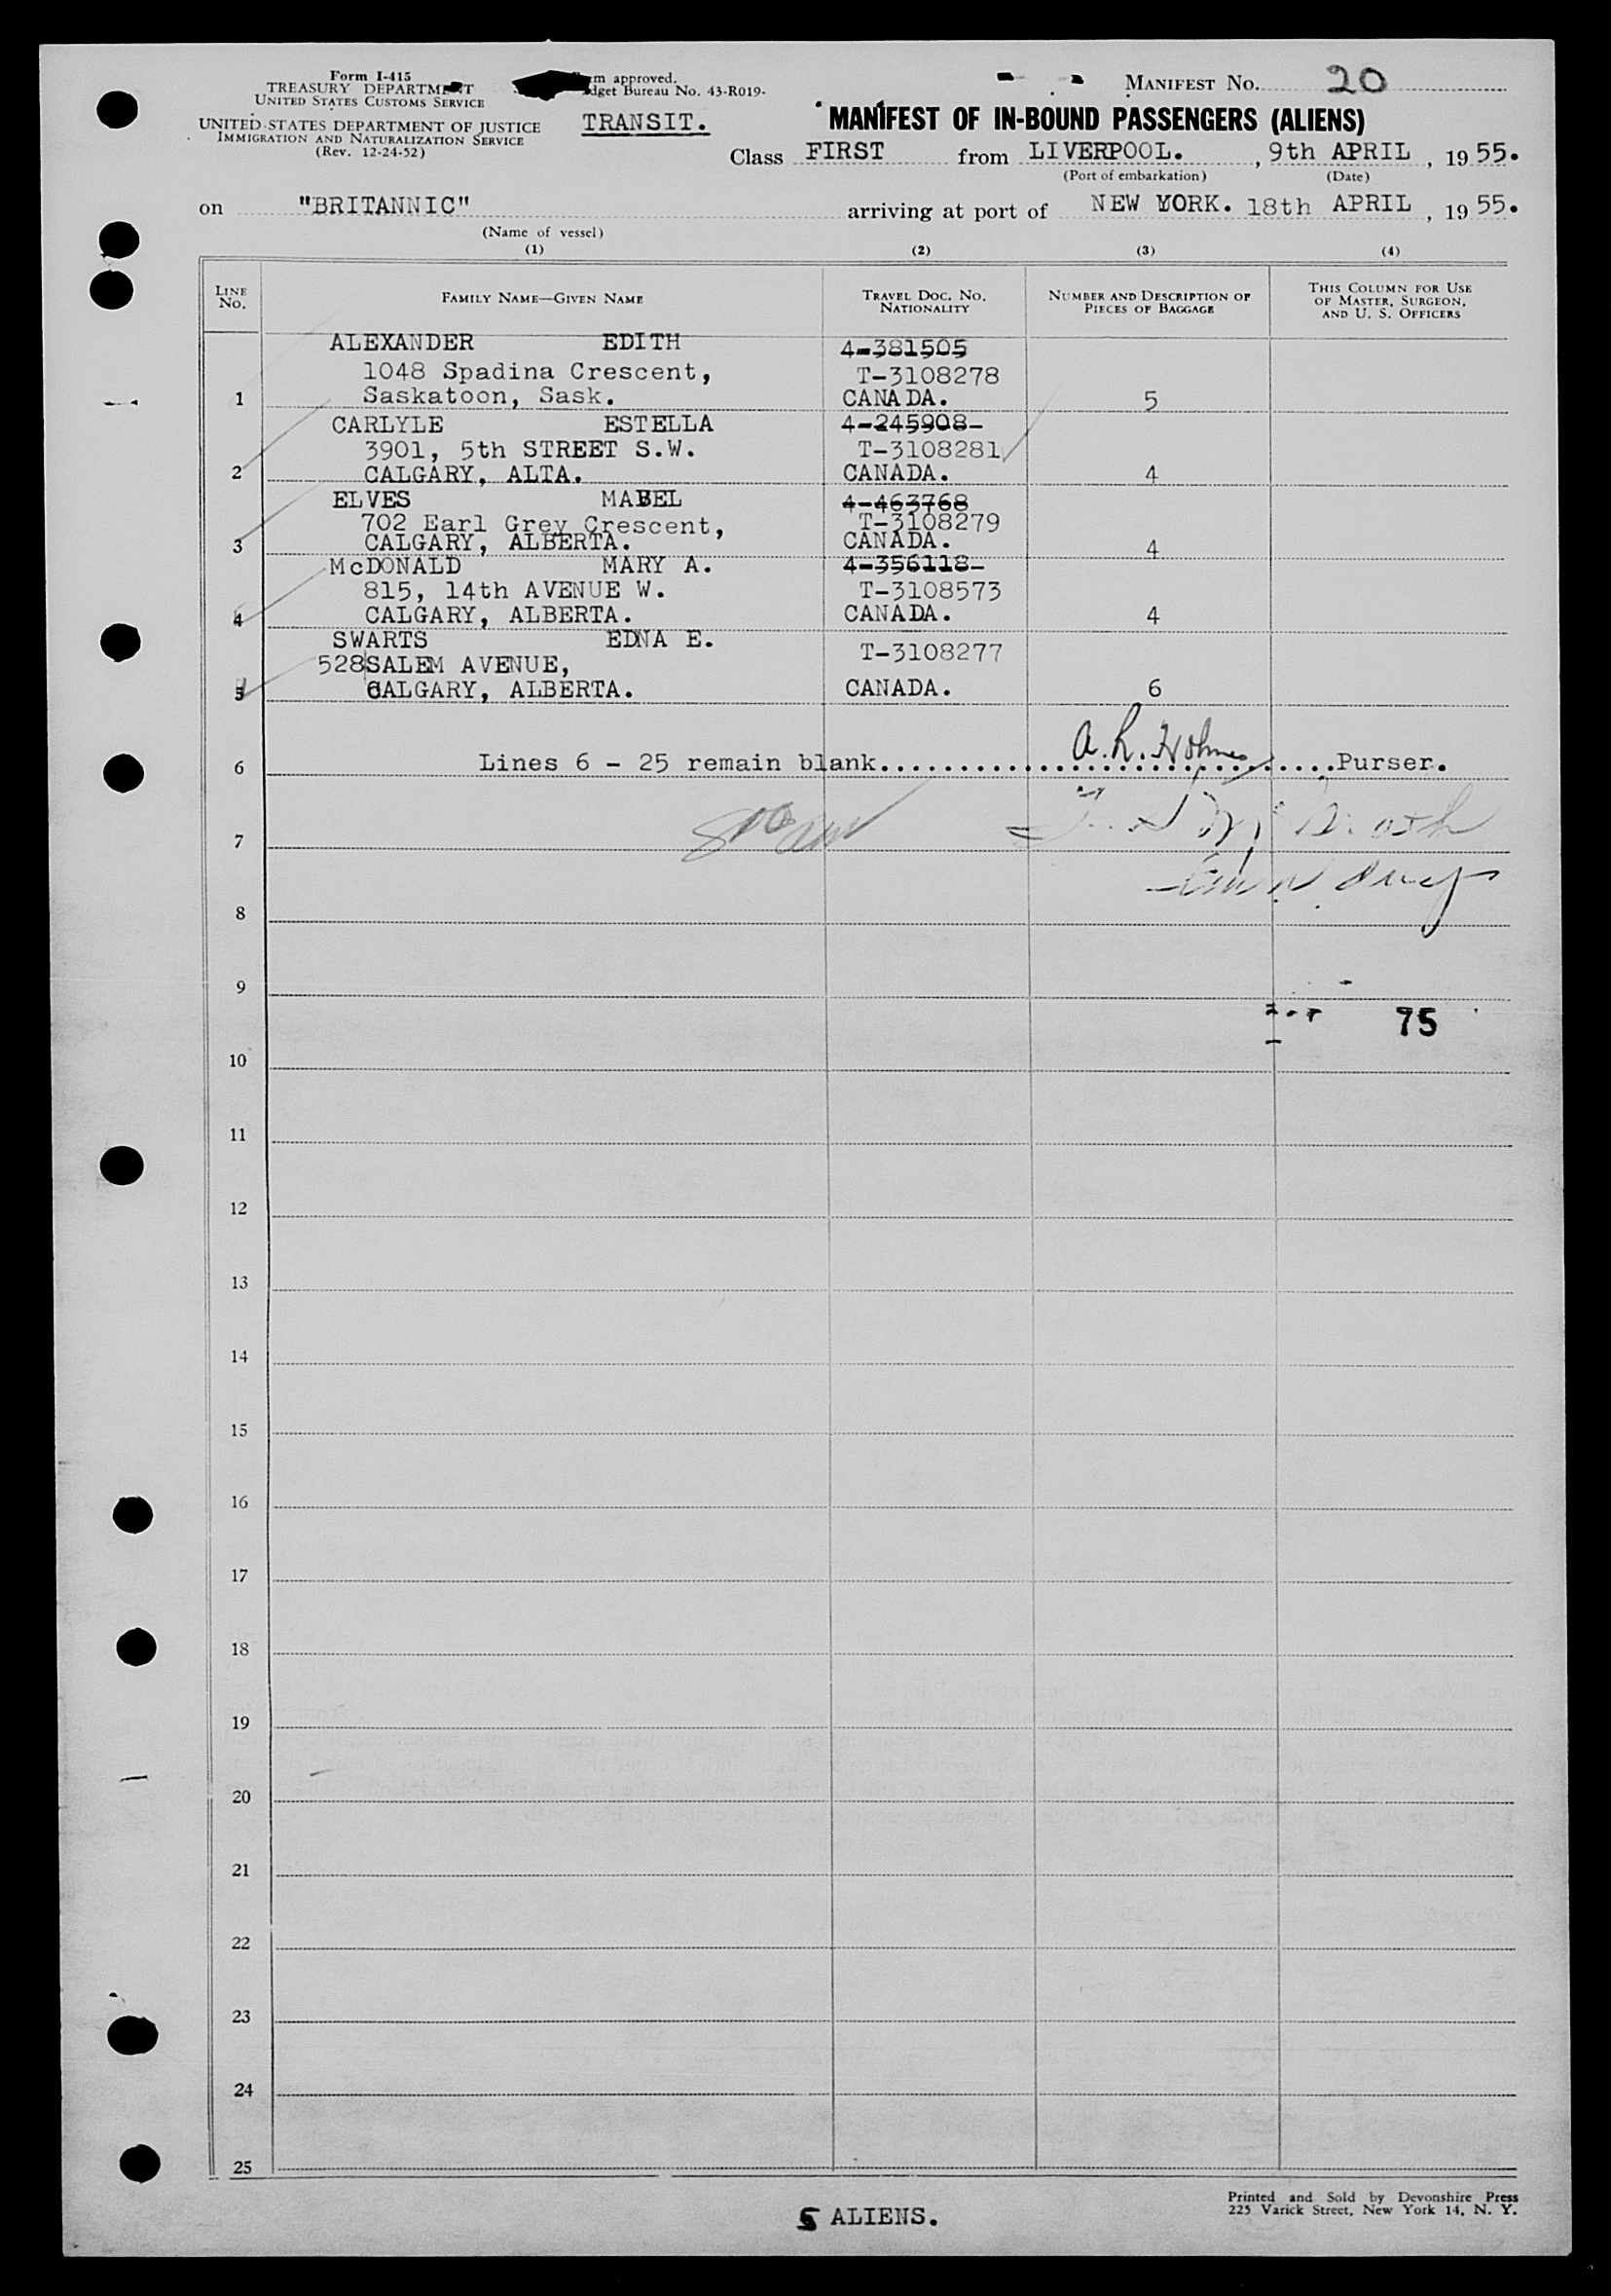 Form I-415
TREASURY DEPARTMENT
UNITED STATES CUSTOMS SERVICE
UNITED STATES DEPARTMENT OF JUSTICE
IMMIGRATION AND NATURALIZATION SERVICE
(Rev. 12-24-52)
approved.
Bureau No. 43-R019-
TRANSIT.
MANIFEST No. 20
MANIFEST OF IN-BOUND PASSENGERS (ALIENS)
Class FIRST from LIVERPOOL. , 9th APRIL , 19 55.
(Port of embarkation) (Date)
on "BRITANNIC" arriving at port of NEW YORK. 18th APRIL , 19 55.
(Name of vessel)
(1) (2) (3) (4)
LINE No. FAMILY NAME—GIVEN NAME TRAVEL DOC. No. NATIONALITY NUMBER AND DESCRIPTION OF PIECES OF BAGGAGE THIS COLUMN FOR USE OF MASTER, SURGEON, AND U. S. OFFICERS
ALEXANDER EDITH 4-381505
1048 Spadina Crescent, T-3108278
1 Saskatoon, Sask. CANADA. 5
CARLYLE ESTELLA 4-245908-
3901, 5th STREET S.W. T-3108281
2 CALGARY, ALTA. CANADA. 4
ELVES MABEL 4-463768
702 Earl Grey Crescent, T-3108279
3 CALGARY, ALBERTA. CANADA. 4
McDONALD MARY A. 4-356118-
815, 14th AVENUE W. T-3108573
4 CALGARY, ALBERTA. CANADA. 4
SWARTS EDNA E. T-3108277
528 SALEM AVENUE,
5 CALGARY, ALBERTA. CANADA. 6
6 Lines 6 - 25 remain blank. A. R. Holmes Purser.
7
8
9
75
10
11
12
13
14
15
16
17
18
19
20
21
22
23
24
25
5 ALIENS.
Printed and Sold by Devonshire Press
225 Varick Street, New York 14, N. Y.